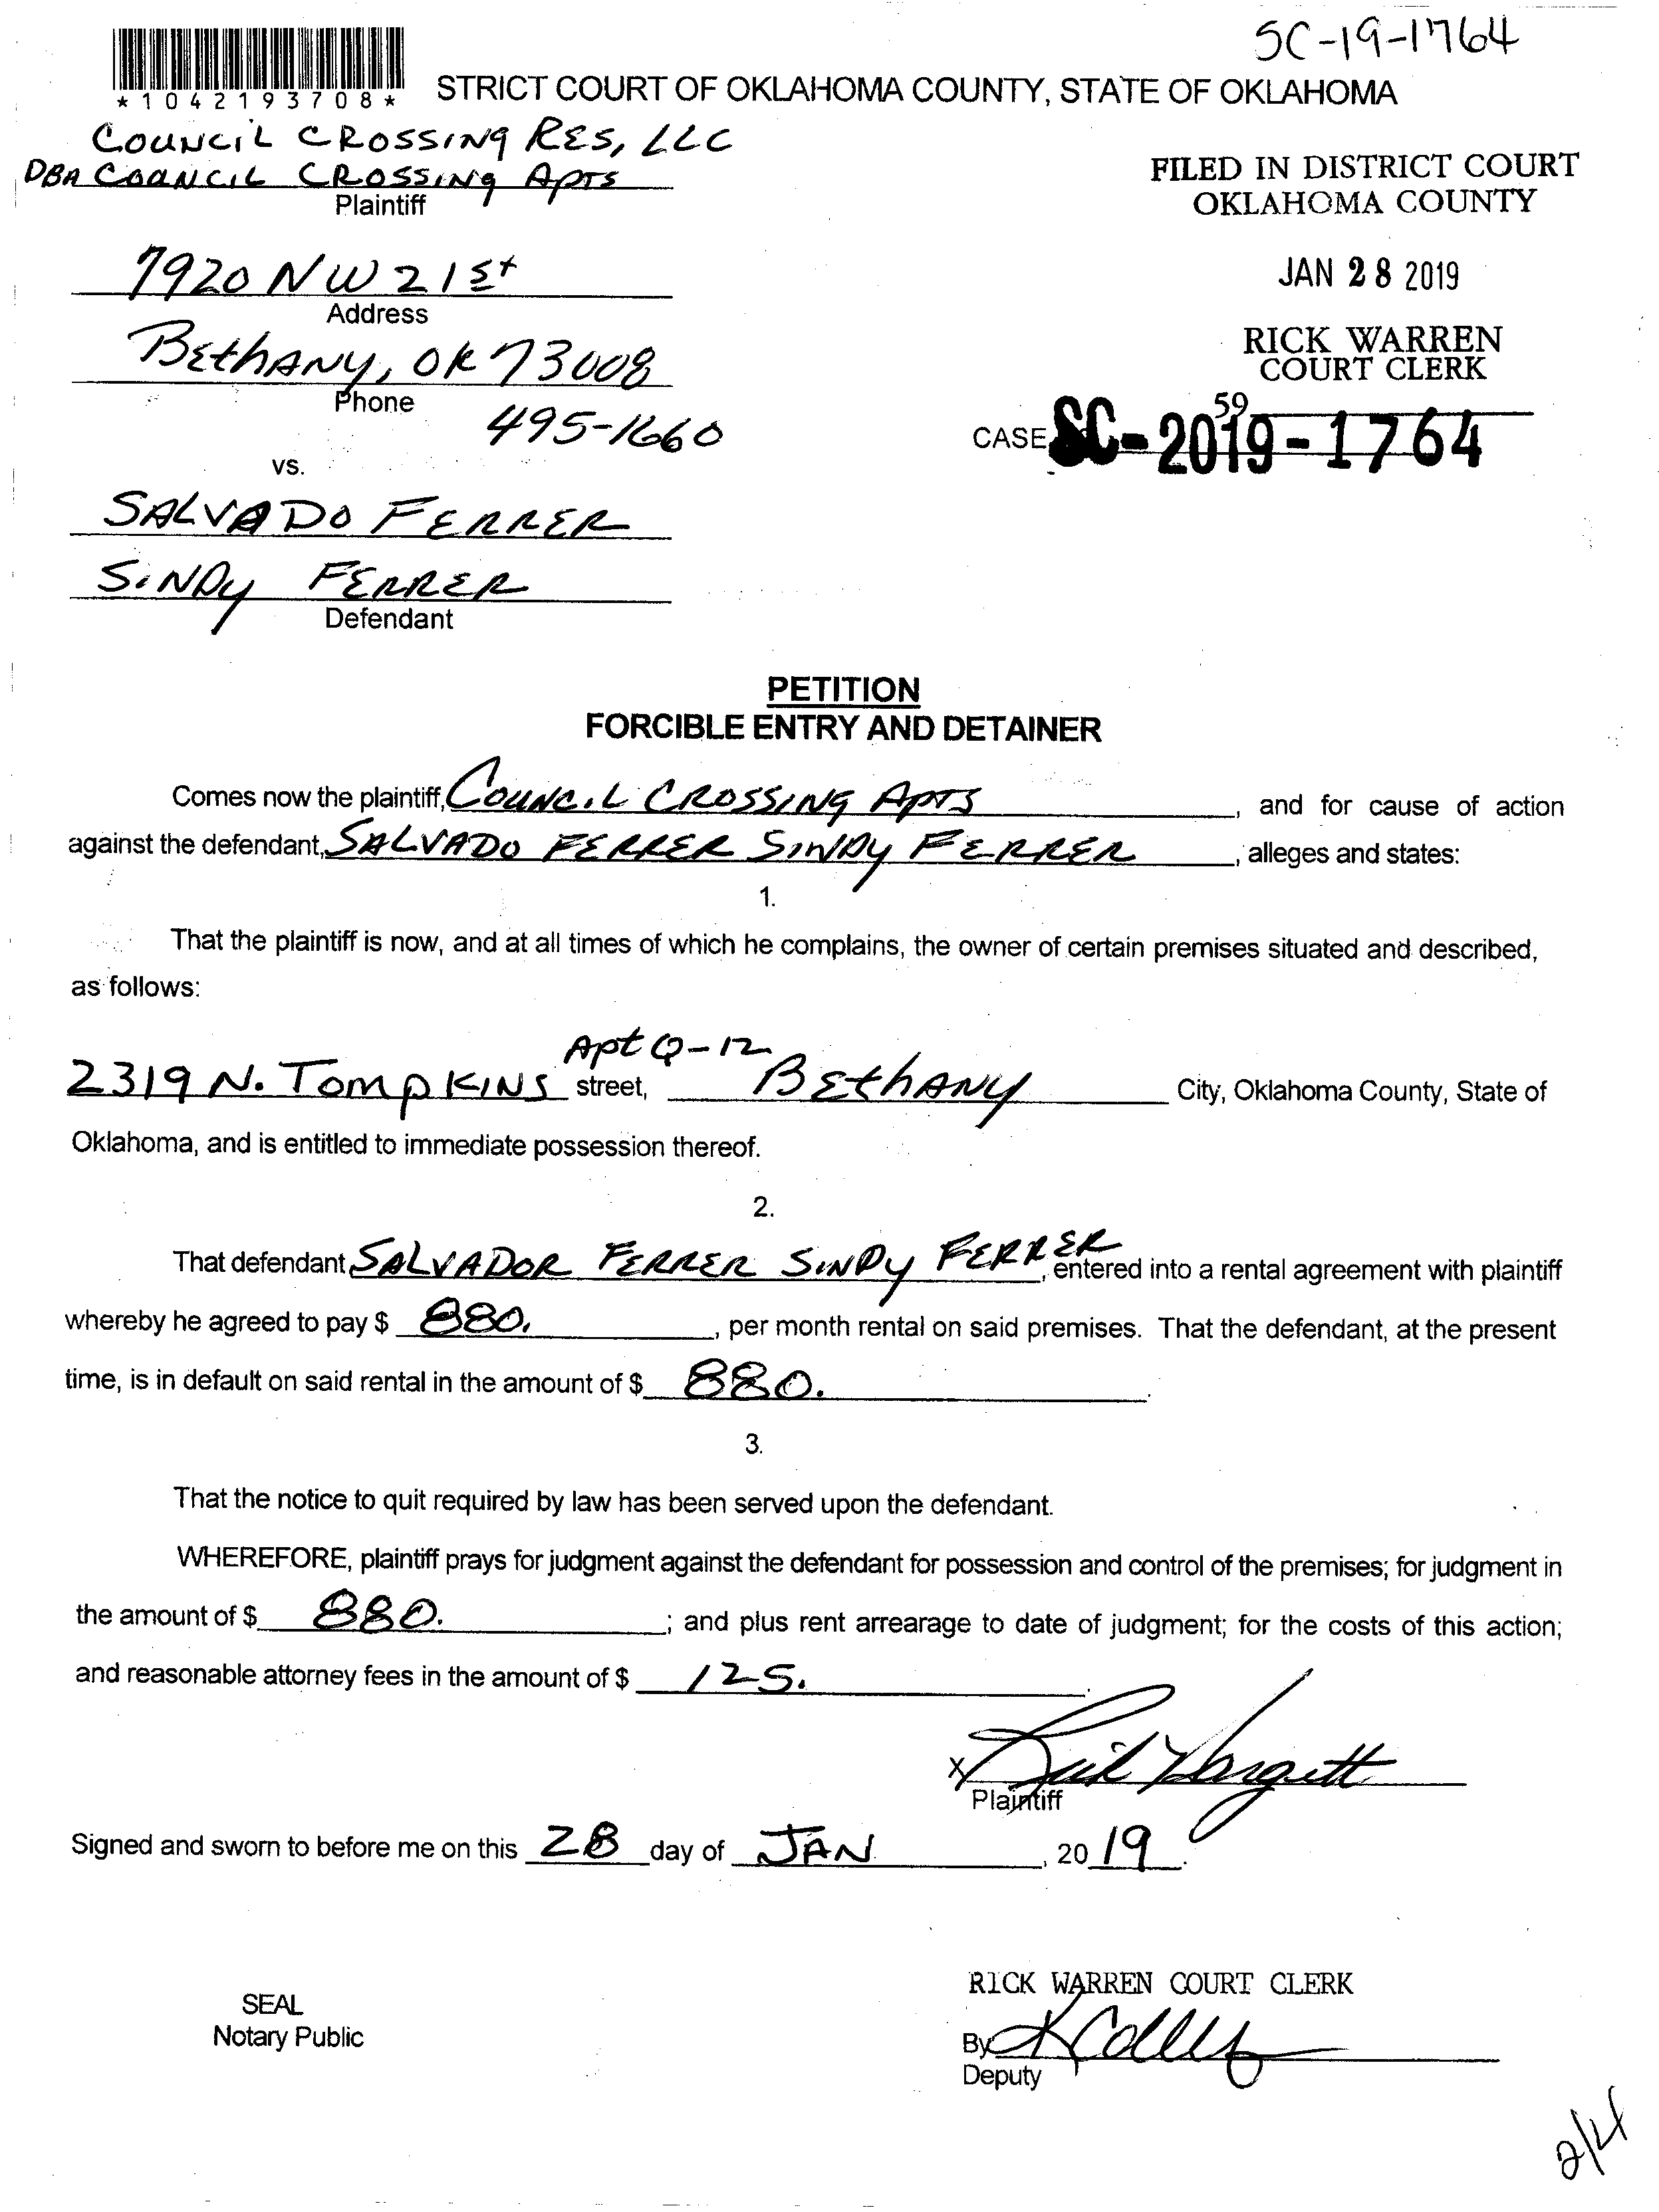 SC-19-1764
*1042193708*
STRICT COURT OF OKLAHOMA COUNTY, STATE OF OKLAHOMA
COUNCIL CROSSING RES, LLC
DBA COUNCIL CROSSING APTS
Plaintiff
FILED IN DISTRICT COURT
OKLAHOMA COUNTY
JAN 28 2019
RICK WARREN
COURT CLERK
7920 NW 21st
Address
BEthANY, OK 73008
Phone
495-1660
59
CASE SC-2019-1764
vs.
SALVADO FERRER
SINDY FERRER
Defendant
PETITION
FORCIBLE ENTRY AND DETAINER
Comes now the plaintiff, COUNCIL CROSSING APTS, and for cause of action
against the defendant, SALVADO FERRER SINDY FERRER, alleges and states:
1.
That the plaintiff is now, and at all times of which he complains, the owner of certain premises situated and described,
as follows:
Apt Q-12
2319 N. TOMPKINS street, BEthANY City, Oklahoma County, State of
Oklahoma, and is entitled to immediate possession thereof.
2.
That defendant SALVADOR FERRER SINDY FERRER, entered into a rental agreement with plaintiff
whereby he agreed to pay $ 880., per month rental on said premises. That the defendant, at the present
time, is in default on said rental in the amount of $ 880.
3.
That the notice to quit required by law has been served upon the defendant.
WHEREFORE, plaintiff prays for judgment against the defendant for possession and control of the premises; for judgment in
the amount of $ 880. ; and plus rent arrearage to date of judgment; for the costs of this action;
and reasonable attorney fees in the amount of $ 125.
X
Plaintiff
Signed and sworn to before me on this 28 day of JAN, 2019.
SEAL
Notary Public
RICK WARREN COURT CLERK
By
Deputy
2/4